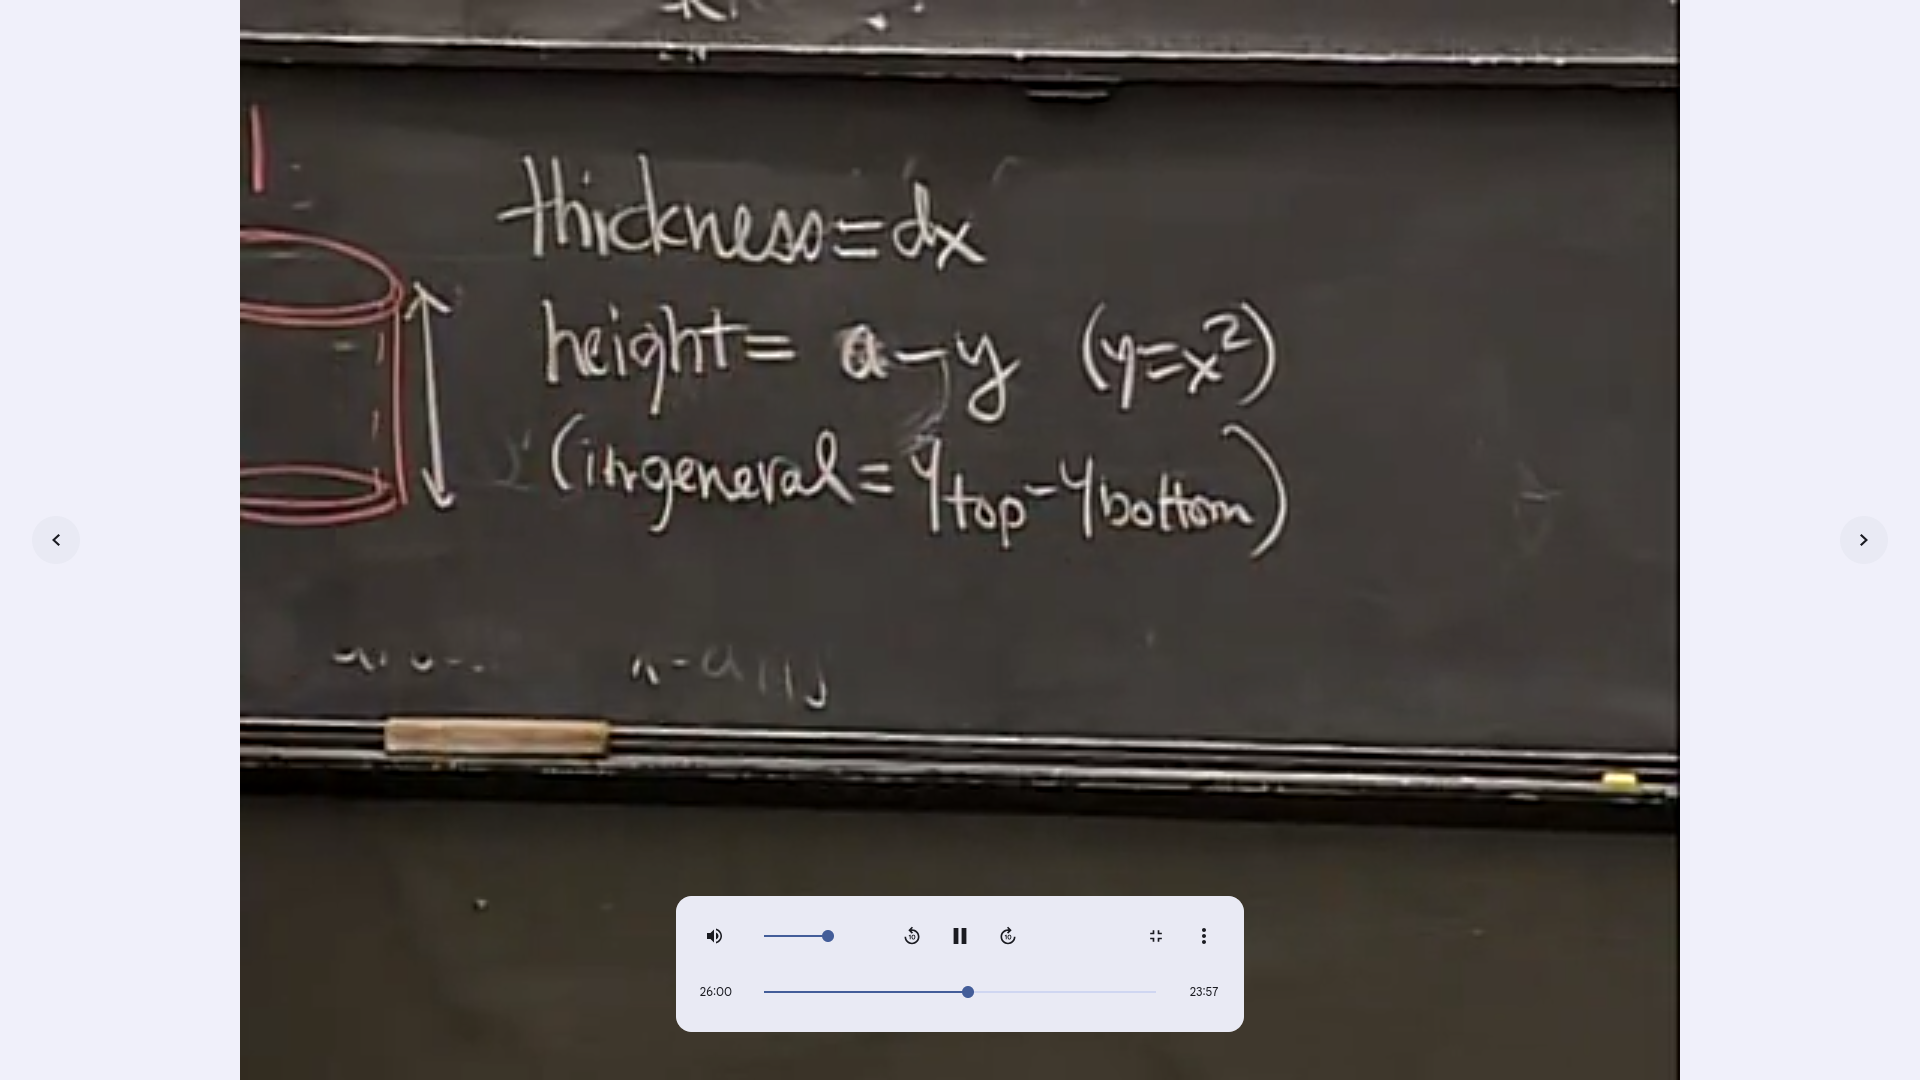 thickness = dx
height = a - y (y = x²)
(in general = y top - y bottom)
10 10
26:00 23:57